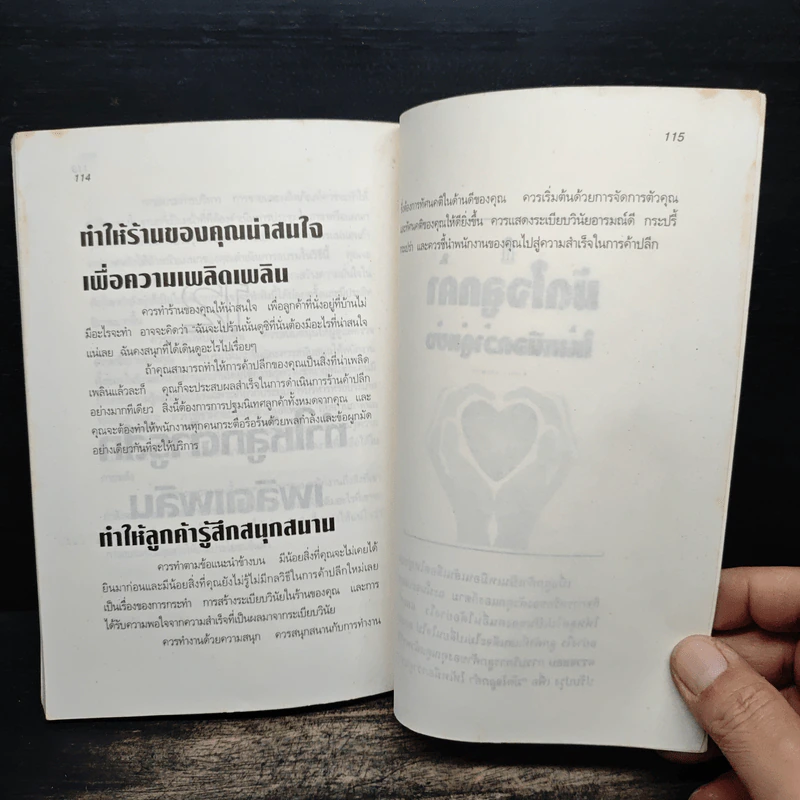 114
ทำให้ร้านของคุณน่าสนใจ
เพื่อความเพลิดเพลิน
ควรทำร้านของคุณให้น่าสนใจ เพื่อลูกค้าที่นั่งอยู่ที่บ้านไม่
มีอะไรจะทำ อาจจะคิดว่า “ฉันจะไปร้านนั้นดูซิที่นั่นต้องมีอะไรที่น่าสนใจ
แน่เลย ฉันคงสนุกที่ได้เดินดูอะไรไปเรื่อยๆ
ถ้าคุณสามารถทำให้การค้าปลีกของคุณเป็นสิ่งที่น่าเพลิด
เพลินแล้วละก็ คุณก็จะประสบผลสำเร็จในการดำเนินการร้านค้าปลีก
อย่างมากทีเดียว สิ่งนี้ต้องการการปฐมนิเทศลูกค้าทั้งหมดจากคุณ และ
คุณจะต้องทำให้พนักงานทุกคนกระตือรือร้นด้วยพลกำลังและข้อผูกมัด
อย่างเดียวกันที่จะให้บริการ
ทำให้ลูกค้ารู้สึกสนุกสนาน
ควรทำตามข้อแนะนำข้างบน มีน้อยสิ่งที่คุณจะไม่เคยได้
ยินมาก่อนและมีน้อยสิ่งที่คุณยังไม่รู้ไม่มีกลวิธีในการค้าปลีกใหม่เลย
เป็นเรื่องของการกระทำ การสร้างระเบียบวินัยในร้านของคุณ และการ
ได้รับความพอใจจากความสำเร็จที่เป็นผลมาจากระเบียบวินัย
ควรทำงานด้วยความสนุก ควรสนุกสนานกับการทำงาน
115
การทัศนคติในด้านดีของคุณ ควรเริ่มต้นด้วยการจัดการตัวคุณ
ทัศนคติของคุณให้ดียิ่งขึ้น ควรแสดงระเบียบวินัยอารมณ์ดี กระปรี้
และควรชี้นำพนักงานของคุณไปสู่ความสำเร็จในการค้าปลีก